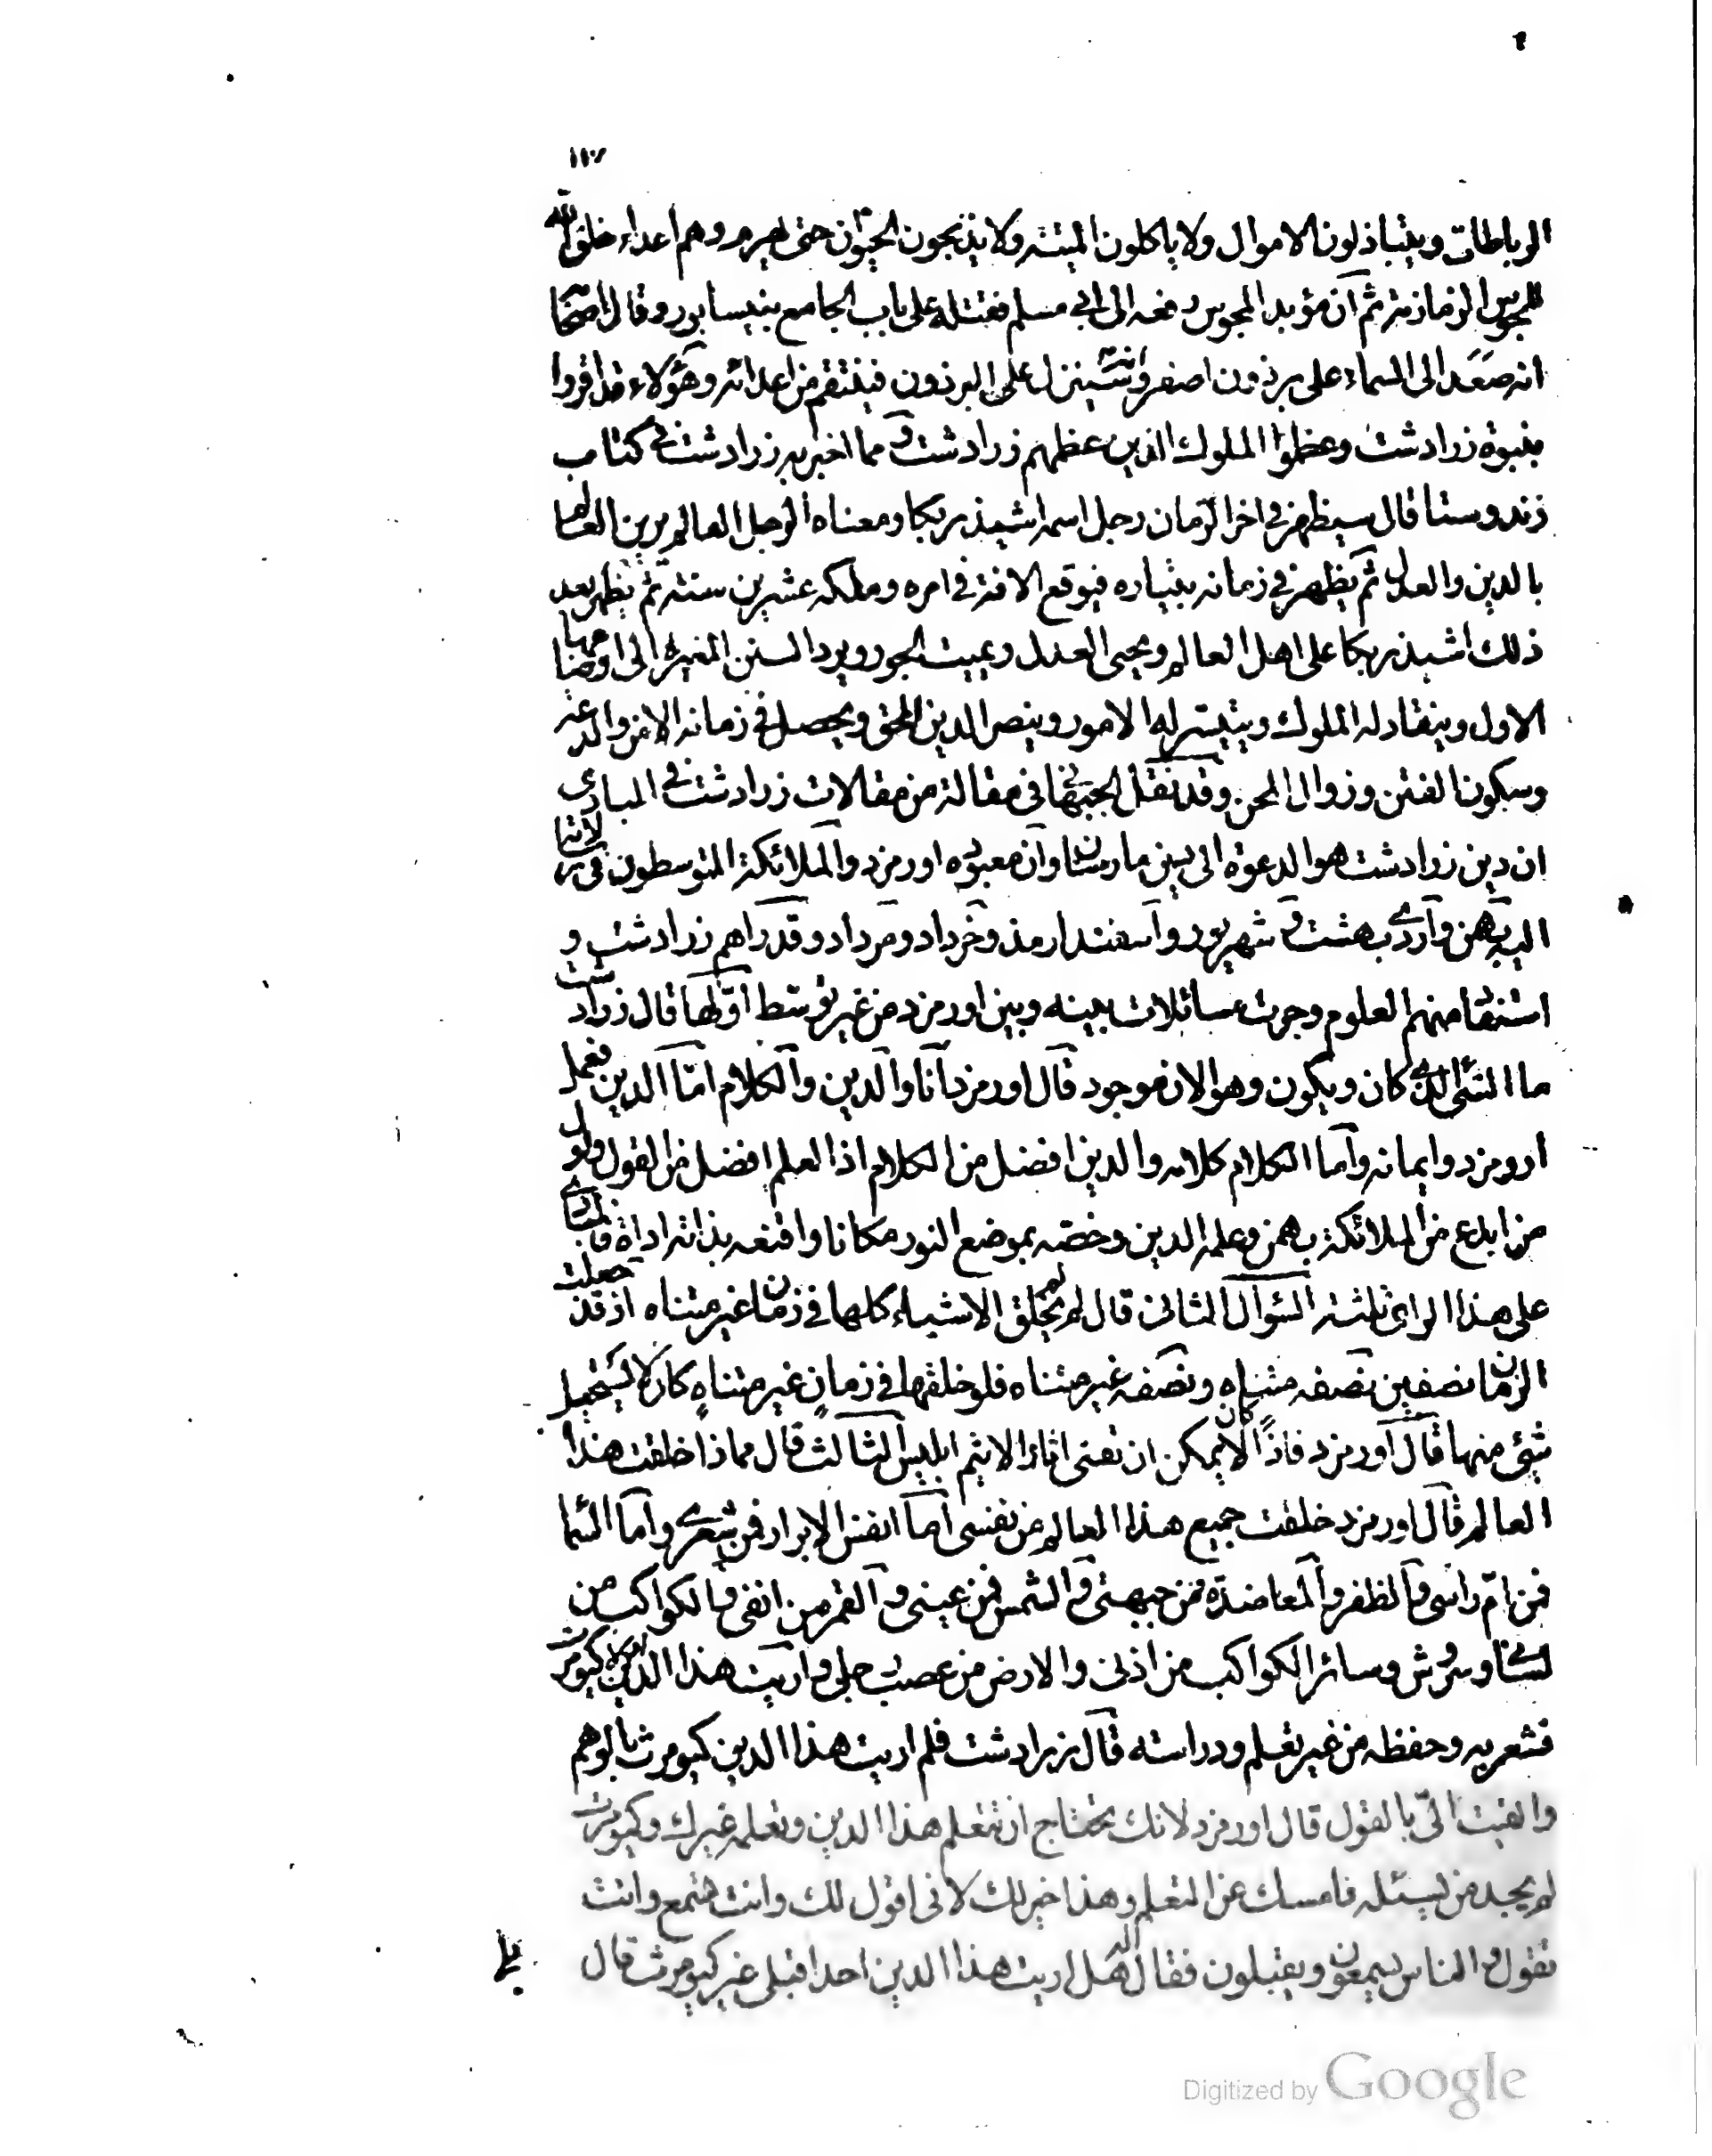 ١١٧
الرباطات ويتباذلون الاموال ولا ياكلون الميتة ولا يذبحون الحيوان حتى يهرم وهم اعداء خلق الله
للمجوس الزمازمة ثم ان مؤبد المجوس رفعه الى ابي مسلم فقتله على باب الجامع بنيسابور وقال اصحابه
انه صعد الى السماء على برذون اصفر وانه سينزل على البرذون فينتقم من اعدائه وهؤلاء قد اقروا
بنبوة زرادشت وعظموا الملوك الذين عظمهم زرادشت ومما اخبر به زرادشت في كتاب
زند وستا قال سيظهر في اخر الزمان رجل اسمه اشيذربكا ومعناه الرجل العالم يزين العالم
بالدين والعدل ثم يظهر في زمانه بتياره فيوقع الافة في امره وملكه عشرين سنة ثم يظهر بعد
ذلك اشيذربكا على اهل العالم ويحيى العدل ويميت الجور ويرد السنن المغيرة الى اوضاعها
الاول وينقاد له الملوك ويتيسر له الامور وينصر الدين الحق ويحصل في زمانه الامن والدعة
وسكون الفتن وزوال المحن وقد نقل الجيهاني في مقالة من مقالات زرادشت في المبادى
ان دين زرادشت هو الدعوة الى دين مارسيان وان معبوده اورمزد والملائكة المتوسطون في رسالاته
اليه بهمن وارديبهشت وشهريور واسفندارمذ وخرداد ومرداد وقد راهم زرادشت و
استفاد منهم العلوم وجرت مسائلات بينه وبين اورمزد من غير توسط اولها قال زرادشت
ما الشئ الذي كان ويكون وهو الان موجود قال اورمزد انا والدين والكلام اما الدين فعمل
اورمزد وايمانه واما الكلام كلامه والدين افضل من الكلام اذ العلم افضل من القول واول
من ابدع من الملائكة بهمن وعلمه الدين وخصه بموضع النور مكانا واقنعه بذاته اداة فالمبادي
على هذا الراى ثلثة السؤال الثاني قال لم لم تخلق الاشياء كلها في زمان غير متناه اذ قد جعلت
الزمان نصفين نصفه متناه ونصفه غير متناه فلو خلقتها في زمان غير متناه كان لا يستحيل
شئ منها قال اورمزد فاذا كان لا يمكن ان تفنى اثار الاثيم ابليس الثالث قال مماذا خلقت هذا
العالم قال اورمزد خلقت جميع هذا العالم من نفسى اما انفس الابرار فمن شعري واما السماء
فمن ام راسى والظفر والمعاضدة فمن جبهتى والشمس فمن عينى والقمر من انفى والكواكب من
لساني وسروش وسائر الكواكب من اذنى والارض من عصب رجلى واريت هذا الدين اولا كيومرث
فشعر به وحفظه من غير تعلم ودراسته قال زرادشت فلم اريت هذا الدين كيومرث بالوهم
والقيت الى بالقول قال اورمزد لانك تحتاج ان تتعلم هذا الدين وتعلمه غيرك وكيومرث
لم يجد من يسئله فامسك عن التعلم وهذا خير لك لانى اقول لك وانت تسمع وانت
تقول والناس يسمعون ويقبلون فقال له هل اريت هذا الدين احدا قبلى غير كيومرث قال
Digitized by Google